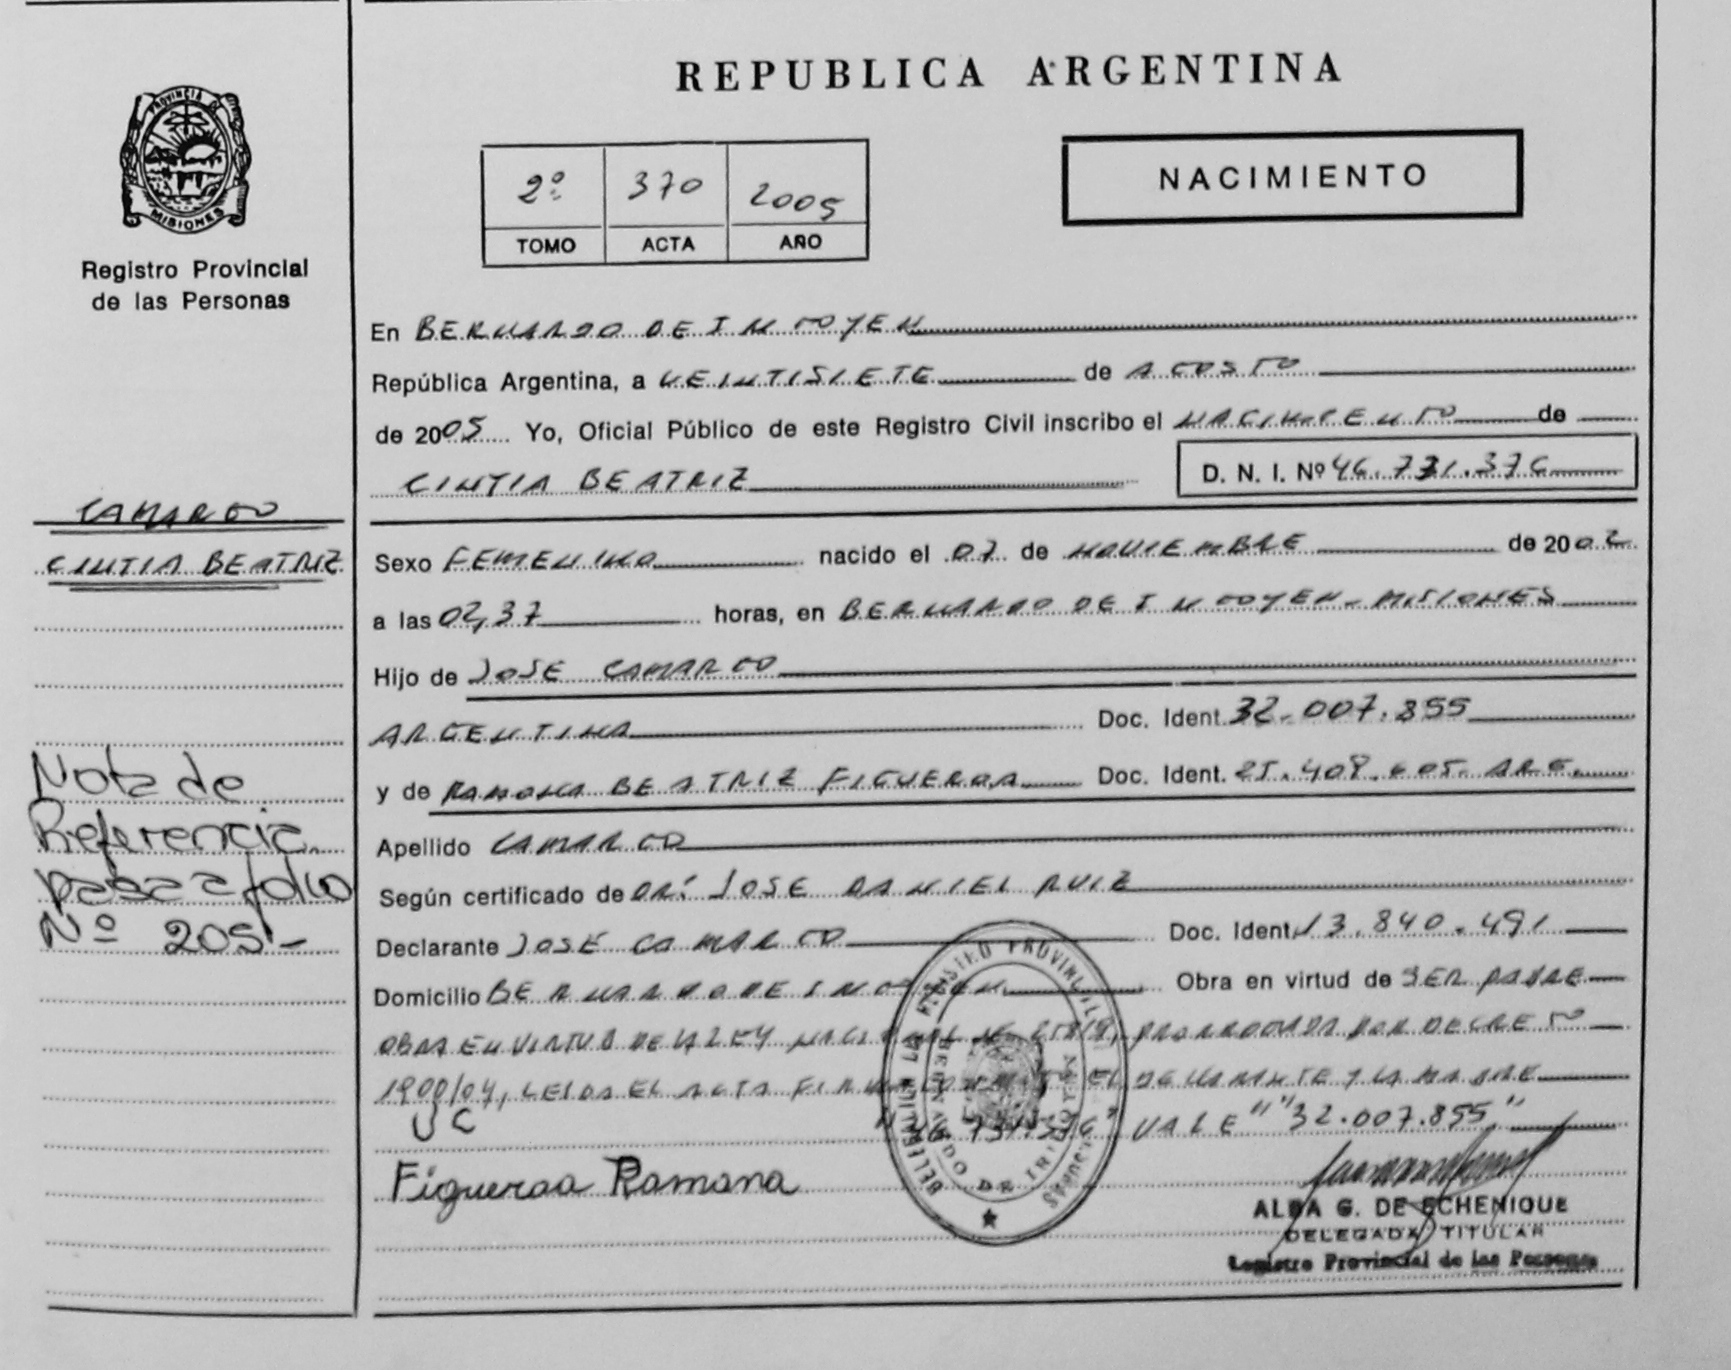 REPUBLICA ARGENTINA
PROVINCIA DE
MISIONES
Registro Provincial
de las Personas
2º 370 2005
TOMO ACTA AÑO
NACIMIENTO
En BERNARDO DE IRIGOYEN
República Argentina, a VEINTISIETE de AGOSTO
de 2005 Yo, Oficial Público de este Registro Civil inscribo el NACIMIENTO de
CINTIA BEATRIZ D. N. I. Nº 46.731.376
CAMARGO
CINTIA BEATRIZ
Sexo FEMENINO nacido el 07 de NOVIEMBRE de 2002
a las 02,37 horas, en BERNARDO DE IRIGOYEN - MISIONES
Hijo de JOSE CAMARGO
ARGENTINA Doc. Ident. 32.007.855
y de RAMONA BEATRIZ FIGUEROA Doc. Ident. 25.408.605. ARG.
Apellido CAMARGO
Según certificado de DR. JOSE DANIEL RUIZ
Declarante JOSÉ CAMARGO Doc. Ident. 13.840.491
Domicilio BERNARDO DE IRIGOYEN Obra en virtud de SER PADRE
OBRA EN VIRTUD DE LA LEY NACIONAL Nº 25819, PRORROGADA POR DECRETO
1900/04, LEIDA EL ACTA FIRMAN CONMIGO EL DECLARANTE Y LA MADRE
"46.731.376" VALE "" 32.007.855 "
JC
Figueroa Ramona
Nota de
Referencia
pasa a folio
Nº 205-
REGISTRO PROVINCIAL
BERNARDO DE IRIGOYEN
MISIONES
ALBA G. DE ECHENIQUE
DELEGADA TITULAR
Registro Provincial de las Personas